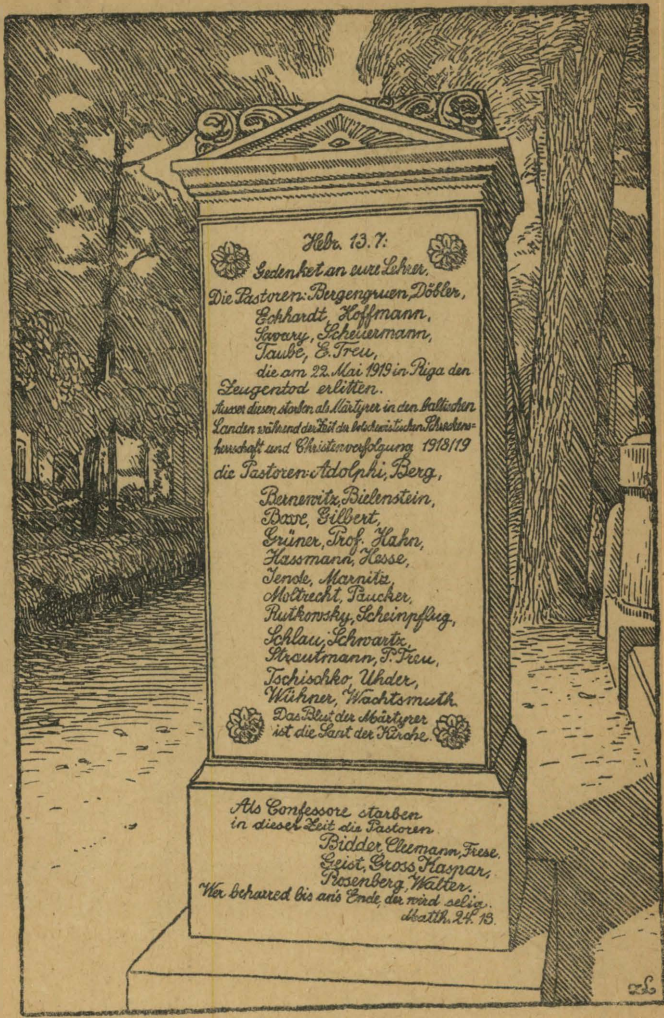 Hebr. 13.7:
Gedenket an eure Lehrer.
Die Pastoren: Bergengruen, Döbler,
Eckhardt, Hoffmann,
Savary, Scheuermann,
Taube, E. Treu,
die am 22. Mai 1919 in Riga den
Zeugentod erlitten.
Ausser diesen starben als Märtyrer in den baltischen
Landen während der Zeit der bolschewistischen Schreckens=
herrschaft und Christenverfolgung 1918/19
die Pastoren: Adolphi, Berg,
Bernewitz, Bielenstein,
Bosse, Gilbert,
Grüner, Prof. Hahn,
Hassmann, Hesse,
Jende, Marnitz,
Moltrecht, Paucker,
Rutkowsky, Scheinpflug,
Schlau, Schwartz,
Strautmann, P. Treu,
Tschischko, Uhder,
Wühner, Wachtsmuth.
Das Blut der Märtyrer
ist die Sant der Kirche.
Als Confessore starben
in dieser Zeit die Pastoren
Bidder, Cleemann, Frese,
Geist, Gross, Kaspar,
Rosenberg, Walter.
Wer beharred bis ans Ende, der wird selig.
Matth. 24. 13.